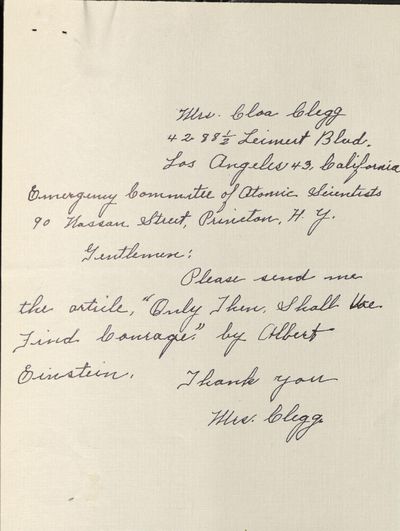 Mrs. Cloa Clegg
4288½ Leimert Blvd.
Los Angeles 43, California
Emergency Committee of Atomic Scientists
90 Nassau Street, Princton, N. Y.
Gentlemen:
Please send me
the article, "Only Then, Shall We
Find Courage," by Albert
Einstein.
Thank you
Mrs. Clegg